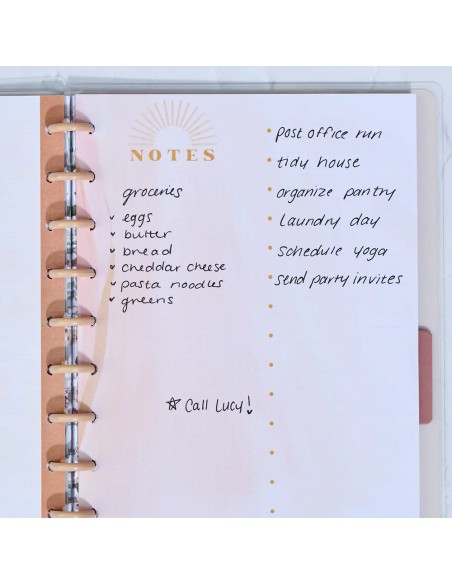 NOTES
groceries
eggs
butter
bread
cheddar cheese
pasta noodles
greens
☆ Call Lucy!
post office run
tidy house
organize pantry
Laundry day
Schedule yoga
send party invites